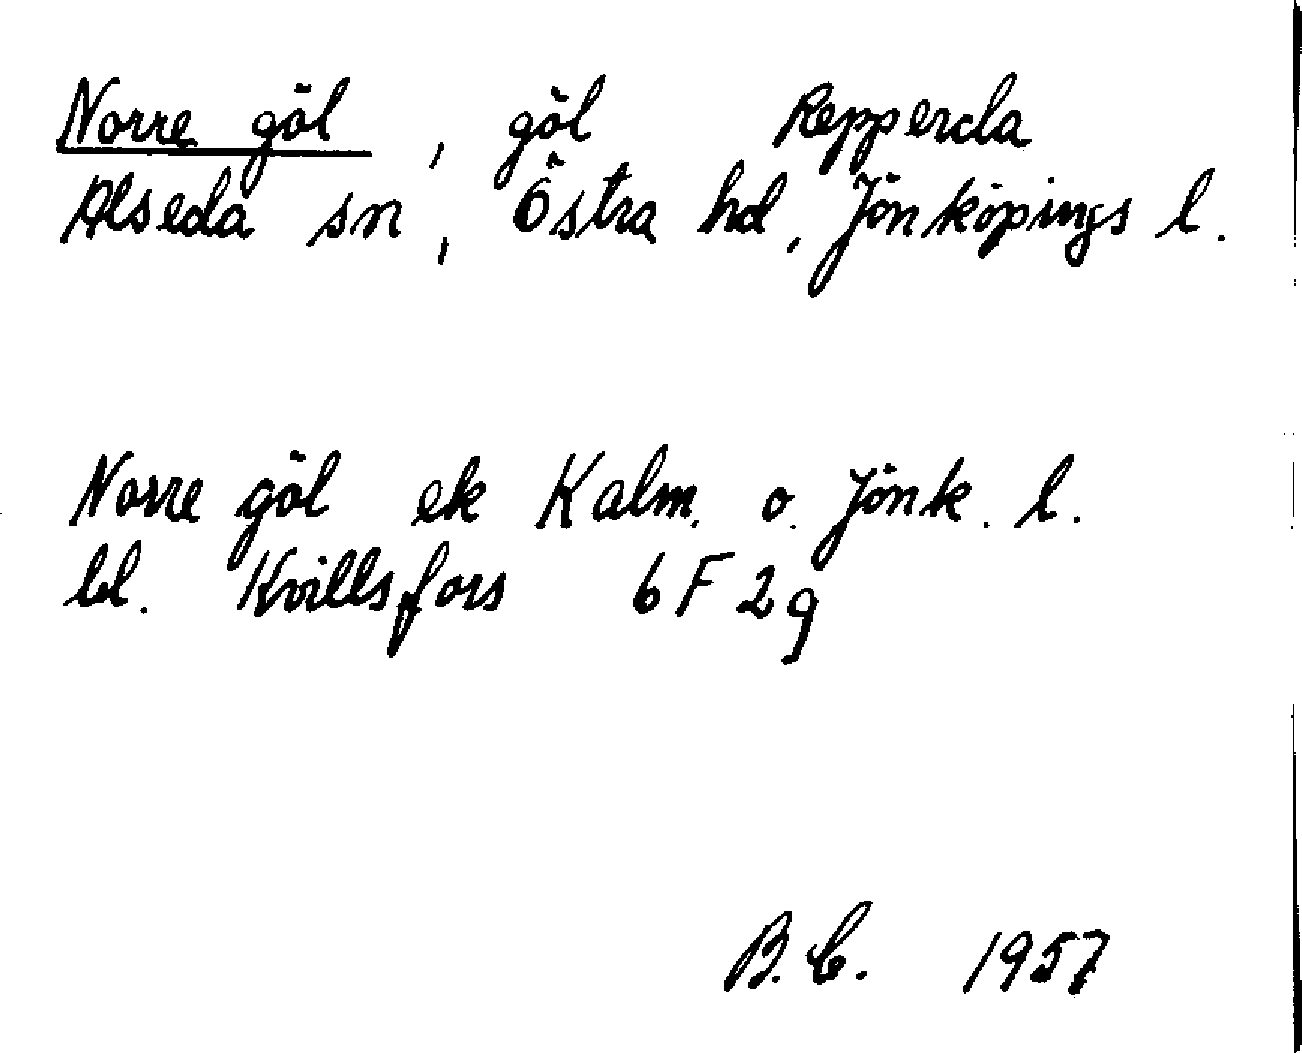 Norre göl, göl Repperda
Alseda sn, Östra hd, Jönköpings l.
Norre göl ek Kalm. o. Jönk. l.
bl. Kvillsfors 6F 2g
B. C. 1957